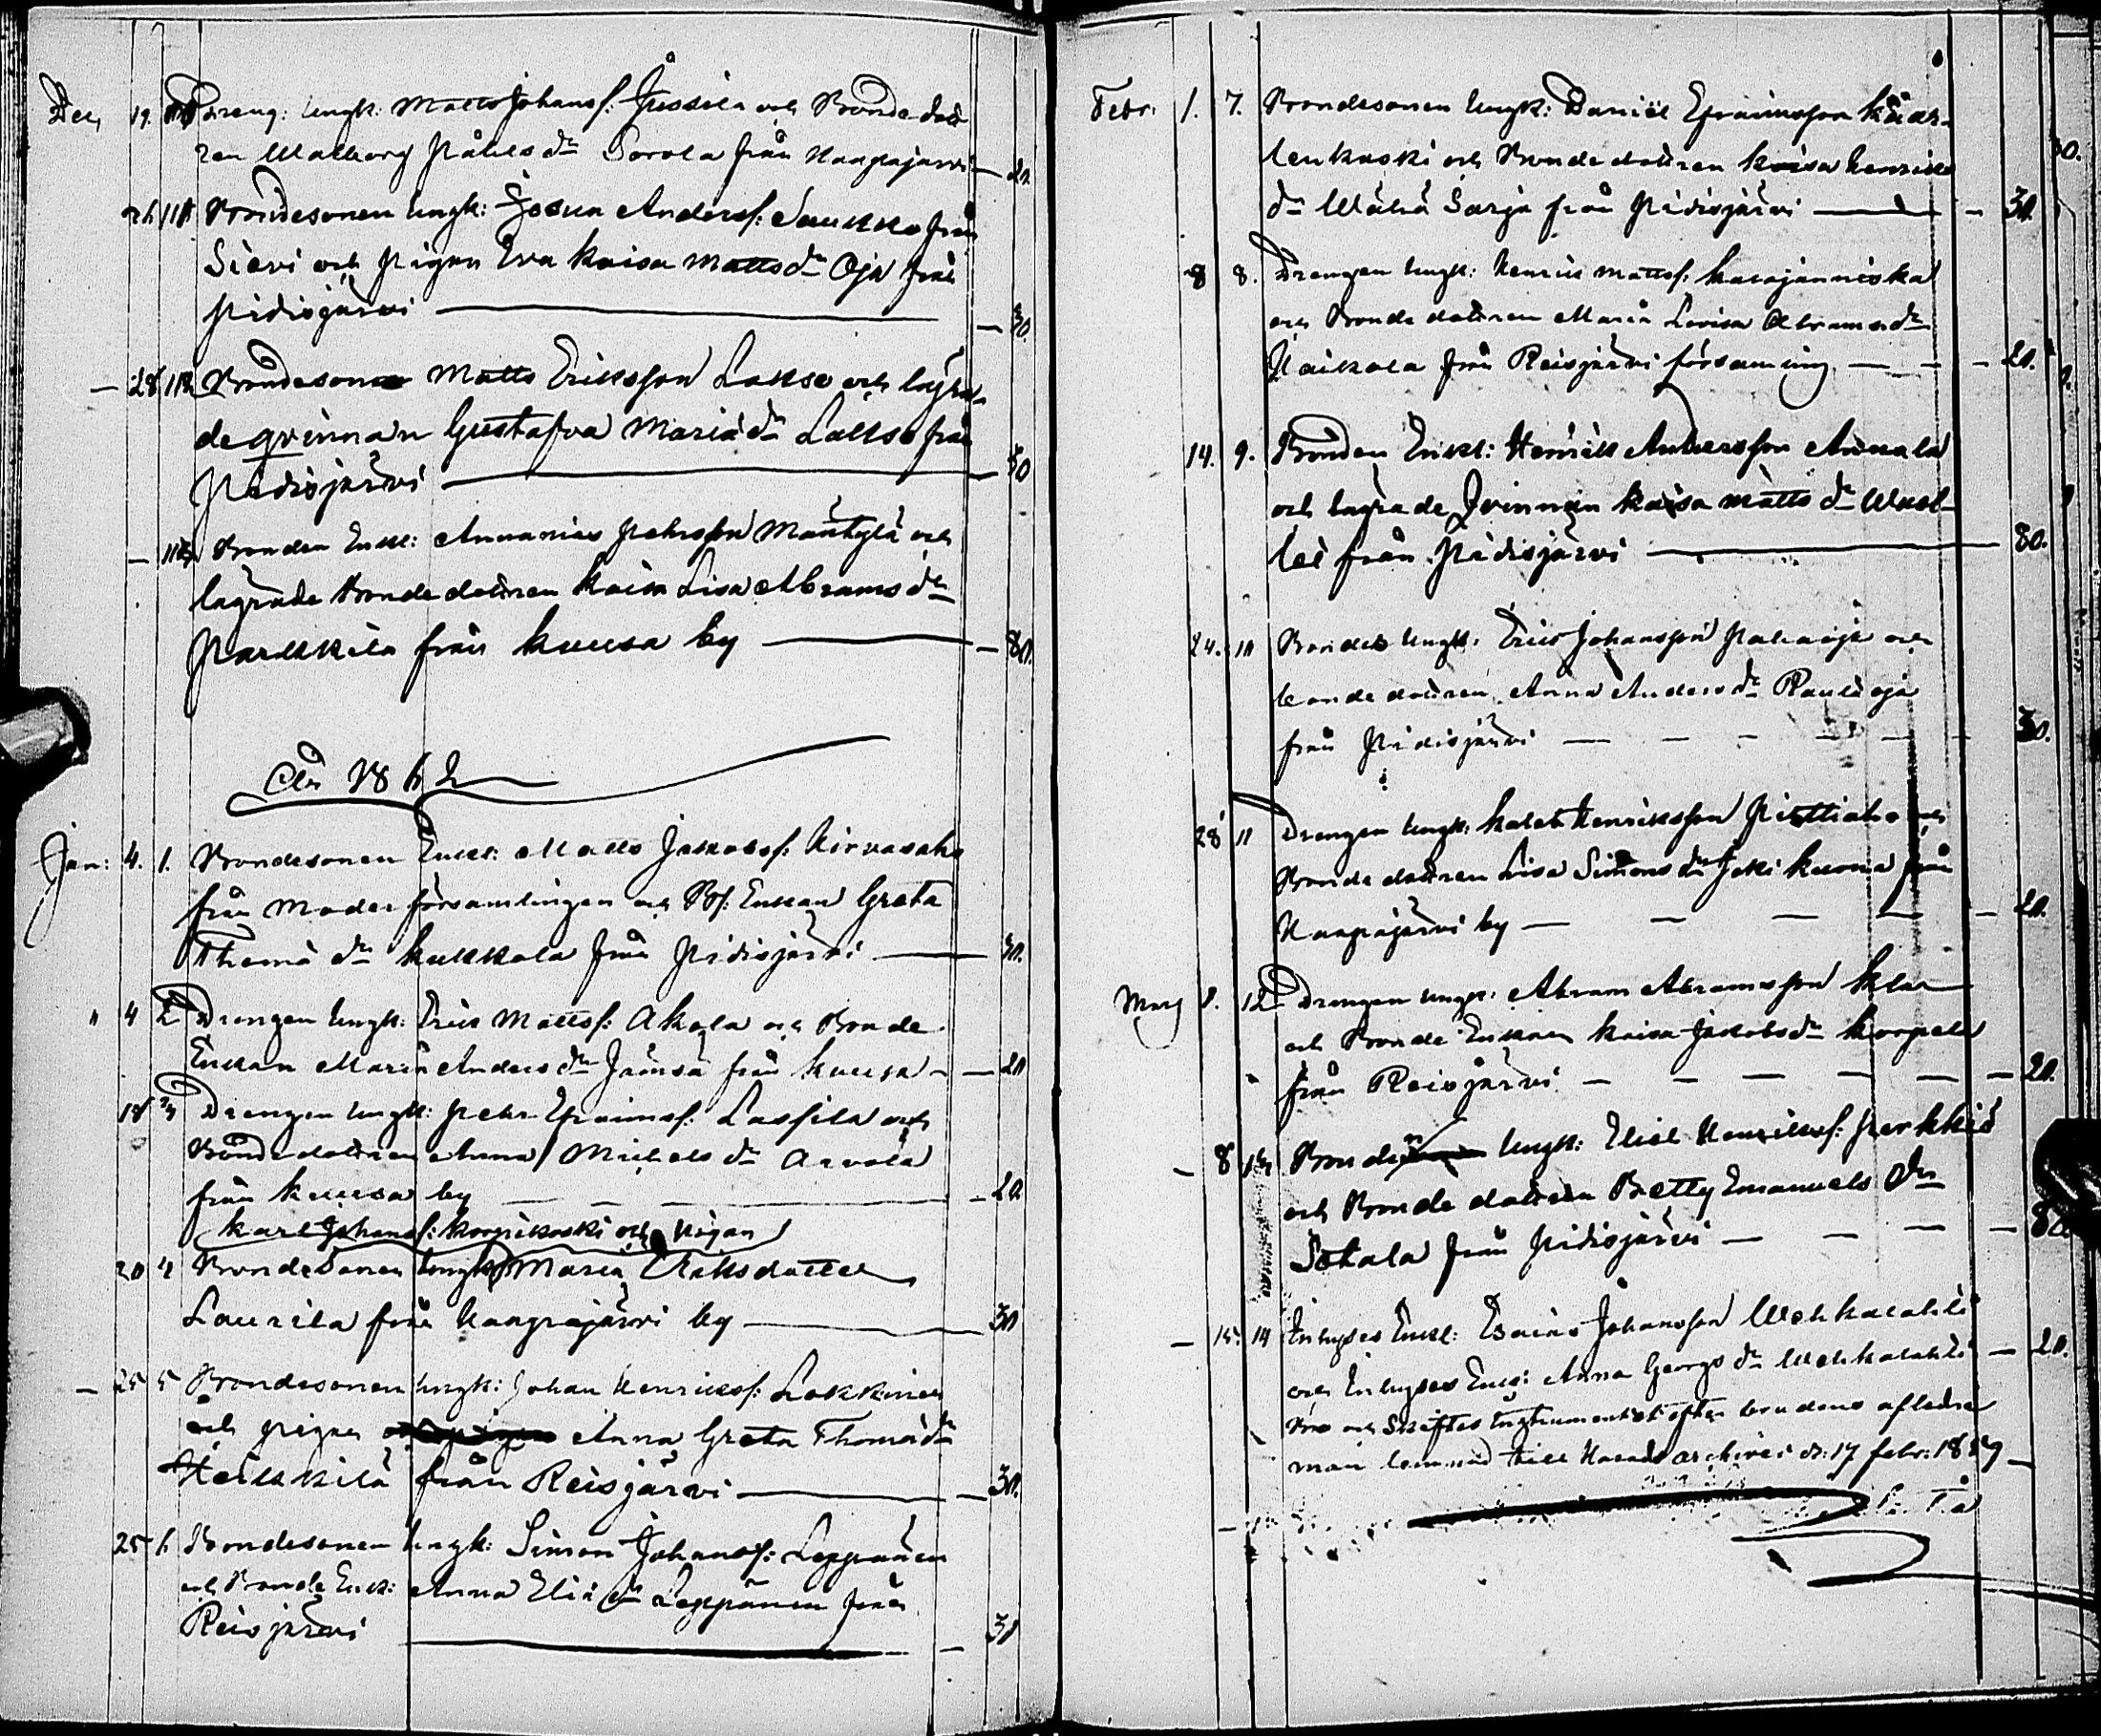 Dec 19. Dreng: Ungk: Matts Johansf: Jussila och Bonde dott
ren Walborg Påhls dr Sorola från Haapajärvi — 20.
26 Bondesonen Ungk: Josua Andersf: Saukko från
Sievi och Pigan Eva Kaisa Matts dr Oja från
Pidisjärvi — 30.
— 28 Bondesonen Matts Eriksson Lakso och lägra-
de qvinnan Gustafva Maria dr Lakso från
Pidisjärvi — 50
— Bonden Enkl: Annanias Pehrsson Mäntylä och
lägrade Bonde dottren Kaisa Lisa Abrams dr
Parkkila från Kuusa by — 80.
År 1862
Jan: 4. 1. Bondesonen Enkl: Matts Jakobsf: Hirvasaho
från Moder församlingen och Bf: Enkan Greta
Thoma dr Kukkola från Pidisjärvi — 30.
" 4 2 Drengen Ungk: Eric Mattsf: Akola och Bonde
Enkan Maria Anders dr Jämsä från Kuusa — 20
18 3 Drengen Ungk: Pehr Efraimsf: Lassila och
Bonde dottren Anna Michels dr Arvola
från Kuusa by — 20.
Karl Johansf: Korpikoski och Pigan
20 4 Bonde Sonen Ungk: Maria Eriksdotter
Laurila från Haapajärvi by — 30
— 25 5 Bondesonen Ungk: Johan Henriksf: Lokkinen
och pigan Anna Greta Thoma dr
Heikkilä från Reisjärvi — 30.
25 6 Bondesonen Ungk: Simon Johansf: Leppänen
och Bonde Enk: Anna Elia dr Leppänen från
Reisjärvi — 30
Febr: 1. 7. Bondesonen Ungk: Daniel Efraimsson
och Bonde dottren Kaisa Henriks
dr Wähä Sarja från Pidisjärvi — 30.
8 8. Drengen Ungk: Henric Mattsf: Karajanniska
och Bonde dottren Maria Lovisa Abrams dr
från Reisjärvi församling — 20.
14. 9. Bonden Enkl: Henrik Andersson Annala
och lägrade Qvinnan Kaisa Matts dr
från Pidisjärvi — 80.
24. 10 Bonden Ungk: Eric Johansson Pahaoja och
bonde dottren Anna Anders dr Rautioja
från Pidisjärvi — 30.
28 11 Drengen Ungk: Kaleb Henriksson Pirttiaho och
Bonde dottren Lisa Simons dr Joki Kuona från
Haapajärvi by — 20.
Mars 8. 12 Drengen Ungk: Abram Abramsson Klar
och Bonde Enkan Kaisa Jakobs dr Korpela
från Reisjärvi — 20.
— 8 13 Bonden Ungk: Eliel Henriksf: Perkkiö
och Bonde dottren Betty Emanuels dr
Sokala från Pidisjärvi — 80
— 15. 14 Inhyses Enkl: Esaias Johansson Wehkalahti
och Inhyses Enk: Anna Georgs dr Wehkalahti — 20.
Bou och Skiftes Instrumentet efter brudens afledne
man lemnad till Härads archivet d: 17 febr: 1859 —